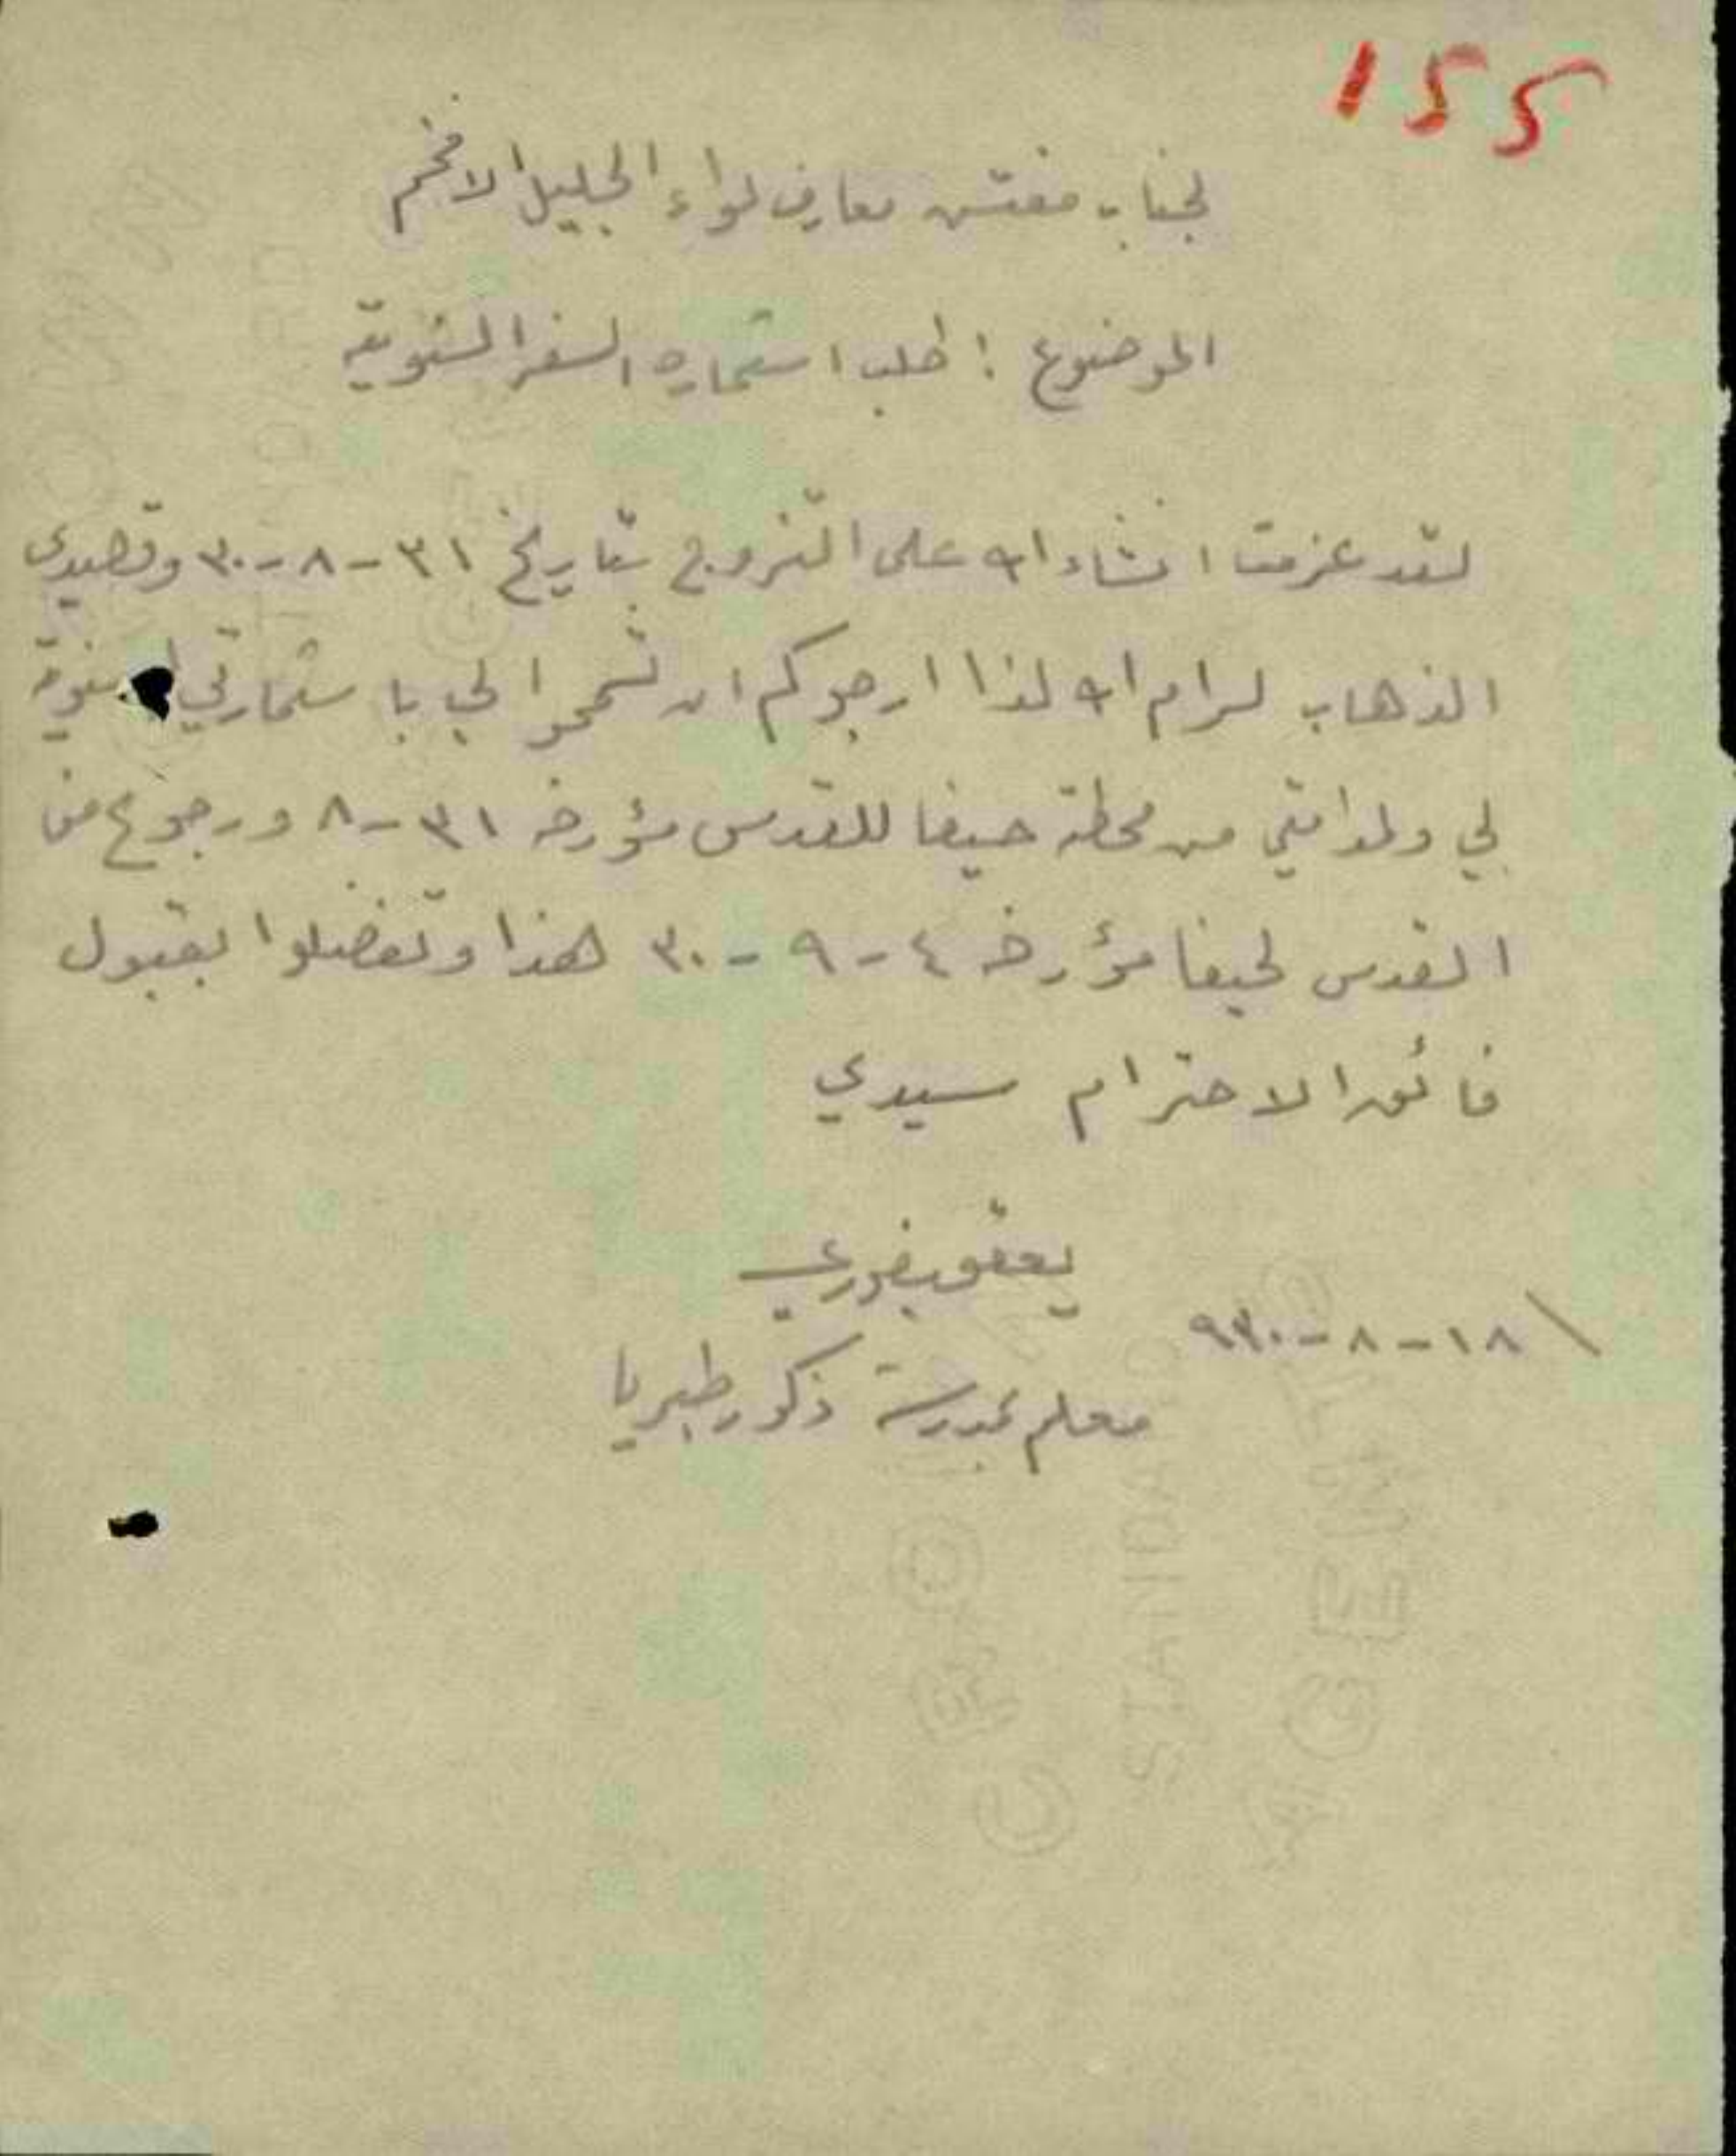 155
لجناب مفتش معارف لواء الجليل الافخم
الموضوع : طلب استمارة السفر السنوية
لقد عزمت انشاء الله على التزوج بتاريخ ٣١-٨-٣٠ وقصدي
الذهاب لرام الله لذا ارجوكم ان تسمحوا لي باستمارتي السنوية
لي ولمرافقي من محطة حيفا للقدس مؤرخة ٣١-٨ ورجوع من
القدس لحيفا مؤرخة ٤-٩-٣٠ هذا وتفضلوا بقبول
فائق الاحترام سيدي
يعقوب
١٨-٨-٩٣٠
معلم بمدرسة ذكور طبريا
STANDARD